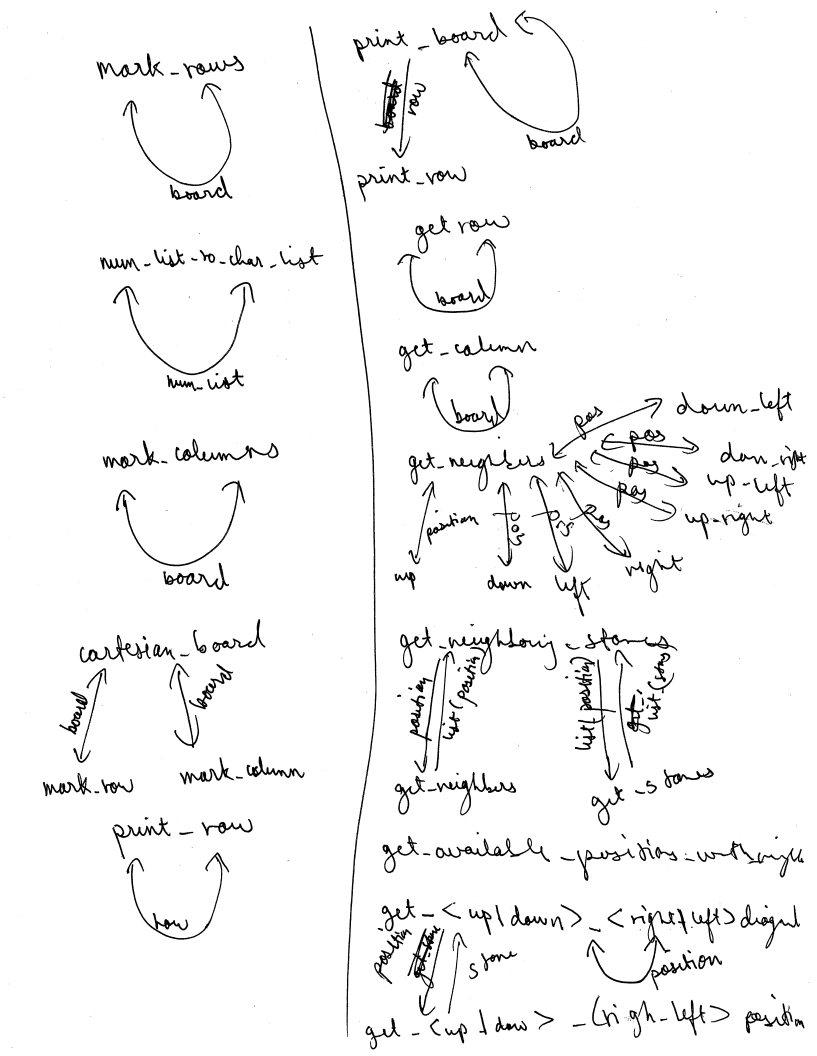 mark_rows
board
num_list_to_char_list
num_list
mark_columns
board
cartesian_board
board
board
mark_row
mark_column
print_row
row
print_board
row
board
print_row
get row
board
get_column
board
get_neighbers
pos
down_left
pos
down_right
pos
up_left
pos
up_right
position
pos
pos
pos
up
down
left
right
get_neighboring_stones
position
list(position)
list(position)
get_neighbers
get_stones
get_available_positions_
get_<up|down>_<right|left>
position
stone
position
get_<up_|dow>_(righ_left> position